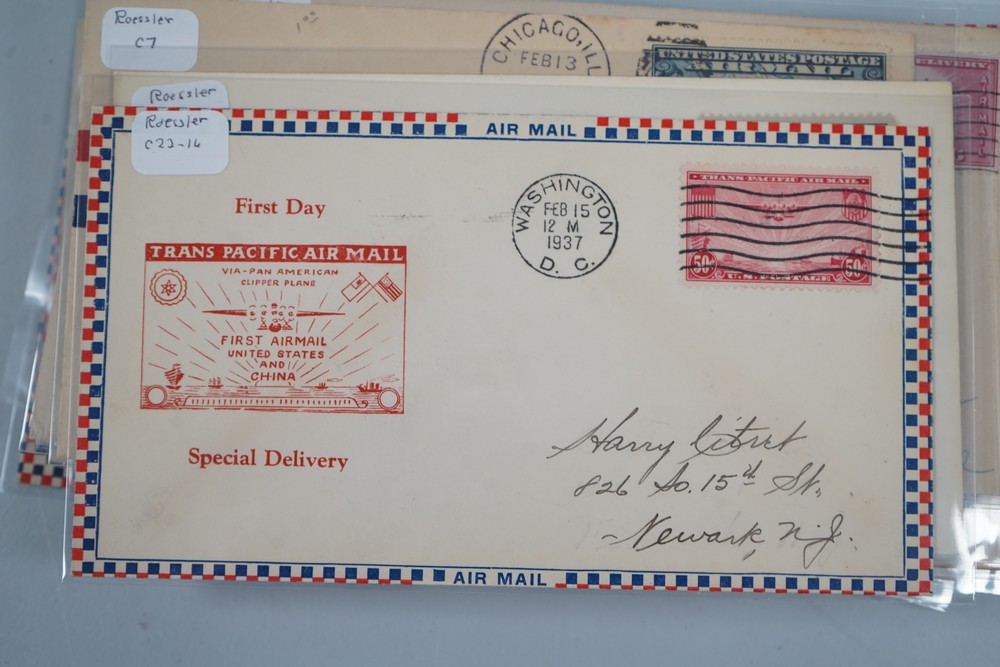 Roessler
C7
1⁰⁰
CHICAGO, ILL
FEB 13
UNITED STATES POSTAGE
SLAVERY
AIR MAIL
Roessler
Roessler
C23-16
AIR MAIL
First Day
TRANS PACIFIC AIR MAIL
VIA-PAN AMERICAN
CLIPPER PLANE
FIRST AIRMAIL
UNITED STATES
AND
CHINA
Special Delivery
WASHINGTON
FEB 15
12 M
1937
D. C.
TRANS-PACIFIC AIR MAIL
50¢ 50¢
U.S. POSTAGE
Harry
826 So. 15th St.,
Newark, N.J.
AIR MAIL